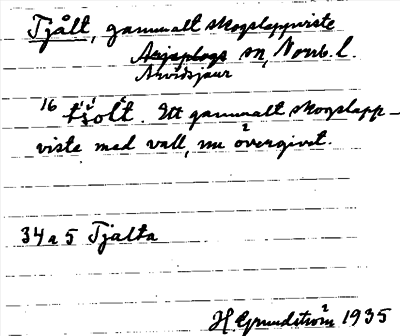 Tjålt, gammalt skogslappviste
Arjeplogs sn, Norrb. l.
Arvidsjaur
16 tšolt. Ett gammalt skogslapp-
viste med vall, nu övergivet.
34 a 5 Tjalta
H. Grundström 1935